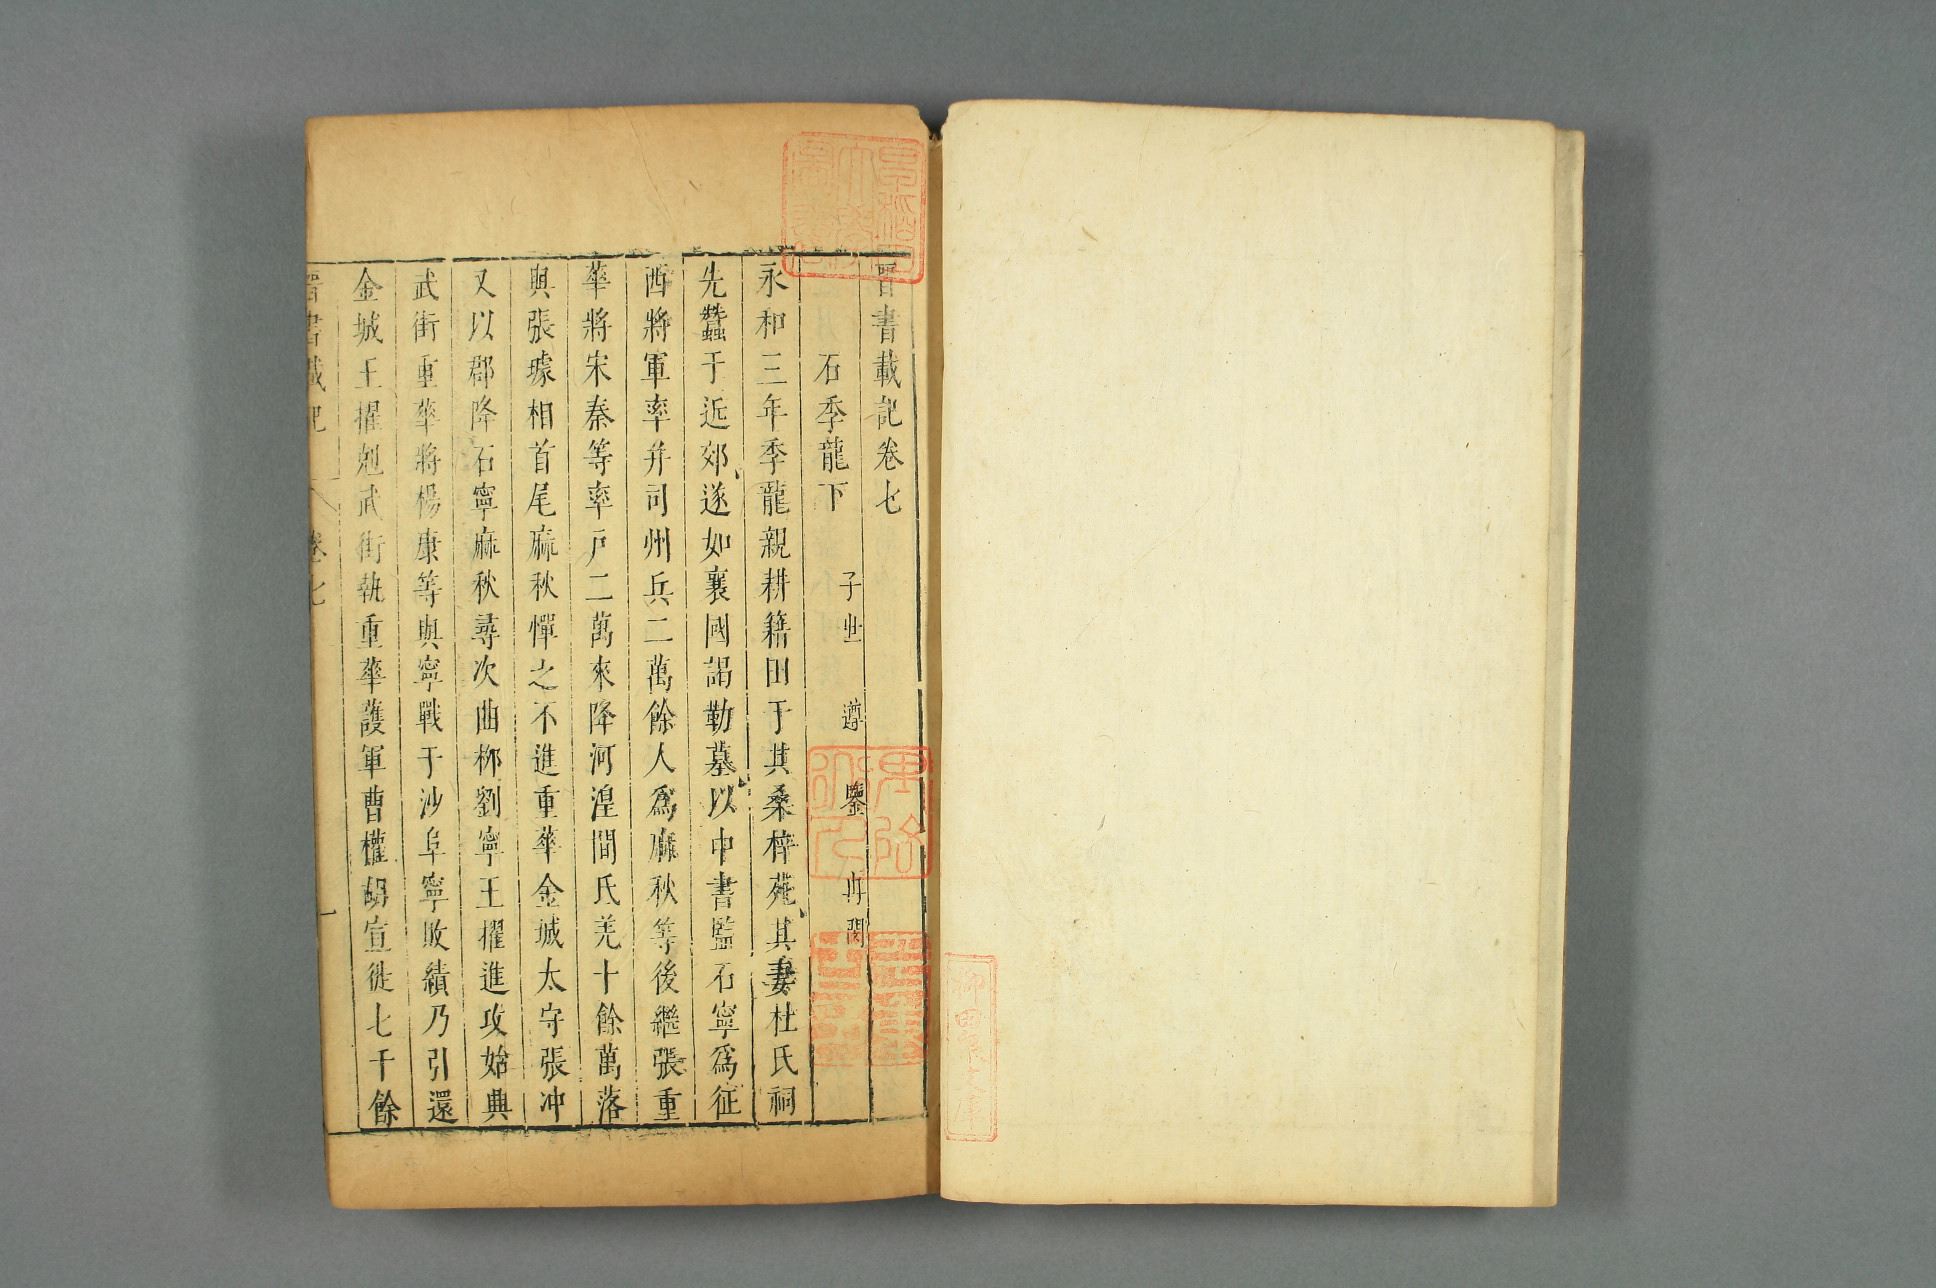 晉書載記卷七
石季龍下　子世　遵　鑒　冉閔
永和三年季龍親耕籍田于其桑梓苑其妻杜氏祠
先蠶于近郊遂如襄國謁勒墓以中書監石寧爲征
西將軍率并司州兵二萬餘人爲麻秋等後繼張重
華將宋秦等率戸二萬來降河湟間氐羌十餘萬落
與張璩相首尾麻秋憚之不進重華金城太守張冲
又以郡降石寧麻秋尋次曲柳劉寧王擢進攻始典
武街重華將楊康等與寧戰于沙阜寧敗績乃引還
金城王擢剋武街執重華護軍曹權胡宣徙七千餘
晉書載記　卷七　一
柳田泉文庫